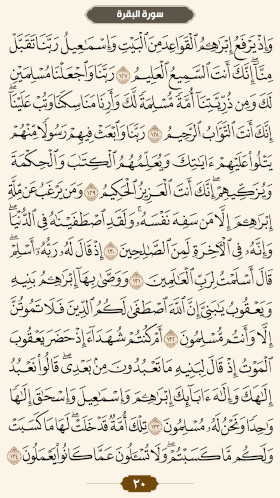 سورة البقرة
وَإِذْ يَرْفَعُ إِبْرَٰهِـۧمُ ٱلْقَوَاعِدَ مِنَ ٱلْبَيْتِ وَإِسْمَـٰعِيلُ رَبَّنَا تَقَبَّلْ
مِنَّآ ۖ إِنَّكَ أَنتَ ٱلسَّمِيعُ ٱلْعَلِيمُ ١٢٧ رَبَّنَا وَٱجْعَلْنَا مُسْلِمَيْنِ
لَكَ وَمِن ذُرِّيَّتِنَآ أُمَّةً مُّسْلِمَةً لَّكَ وَأَرِنَا مَنَاسِكَنَا وَتُبْ عَلَيْنَآ ۖ
إِنَّكَ أَنتَ ٱلتَّوَّابُ ٱلرَّحِيمُ ١٢٨ رَبَّنَا وَٱبْعَثْ فِيهِمْ رَسُولًا مِّنْهُمْ
يَتْلُوا۟ عَلَيْهِمْ ءَايَـٰتِكَ وَيُعَلِّمُهُمُ ٱلْكِتَـٰبَ وَٱلْحِكْمَةَ
وَيُزَكِّيهِمْ ۚ إِنَّكَ أَنتَ ٱلْعَزِيزُ ٱلْحَكِيمُ ١٢٩ وَمَن يَرْغَبُ عَن مِّلَّةِ
إِبْرَٰهِـۧمَ إِلَّا مَن سَفِهَ نَفْسَهُۥ ۚ وَلَقَدِ ٱصْطَفَيْنَـٰهُ فِى ٱلدُّنْيَا ۖ
وَإِنَّهُۥ فِى ٱلْـَٔاخِرَةِ لَمِنَ ٱلصَّـٰلِحِينَ ١٣٠ إِذْ قَالَ لَهُۥ رَبُّهُۥٓ أَسْلِمْ ۖ
قَالَ أَسْلَمْتُ لِرَبِّ ٱلْعَـٰلَمِينَ ١٣١ وَوَصَّىٰ بِهَآ إِبْرَٰهِـۧمُ بَنِيهِ
وَيَعْقُوبُ يَـٰبَنِىَّ إِنَّ ٱللَّهَ ٱصْطَفَىٰ لَكُمُ ٱلدِّينَ فَلَا تَمُوتُنَّ
إِلَّا وَأَنتُم مُّسْلِمُونَ ١٣٢ أَمْ كُنتُمْ شُهَدَآءَ إِذْ حَضَرَ يَعْقُوبَ
ٱلْمَوْتُ إِذْ قَالَ لِبَنِيهِ مَا تَعْبُدُونَ مِنۢ بَعْدِى قَالُوا۟ نَعْبُدُ
إِلَـٰهَكَ وَإِلَـٰهَ ءَابَآئِكَ إِبْرَٰهِـۧمَ وَإِسْمَـٰعِيلَ وَإِسْحَـٰقَ إِلَـٰهًا
وَٰحِدًا وَنَحْنُ لَهُۥ مُسْلِمُونَ ١٣٣ تِلْكَ أُمَّةٌ قَدْ خَلَتْ ۖ لَهَا مَا كَسَبَتْ
وَلَكُم مَّا كَسَبْتُمْ ۖ وَلَا تُسْـَٔلُونَ عَمَّا كَانُوا۟ يَعْمَلُونَ ١٣٤
٢٠